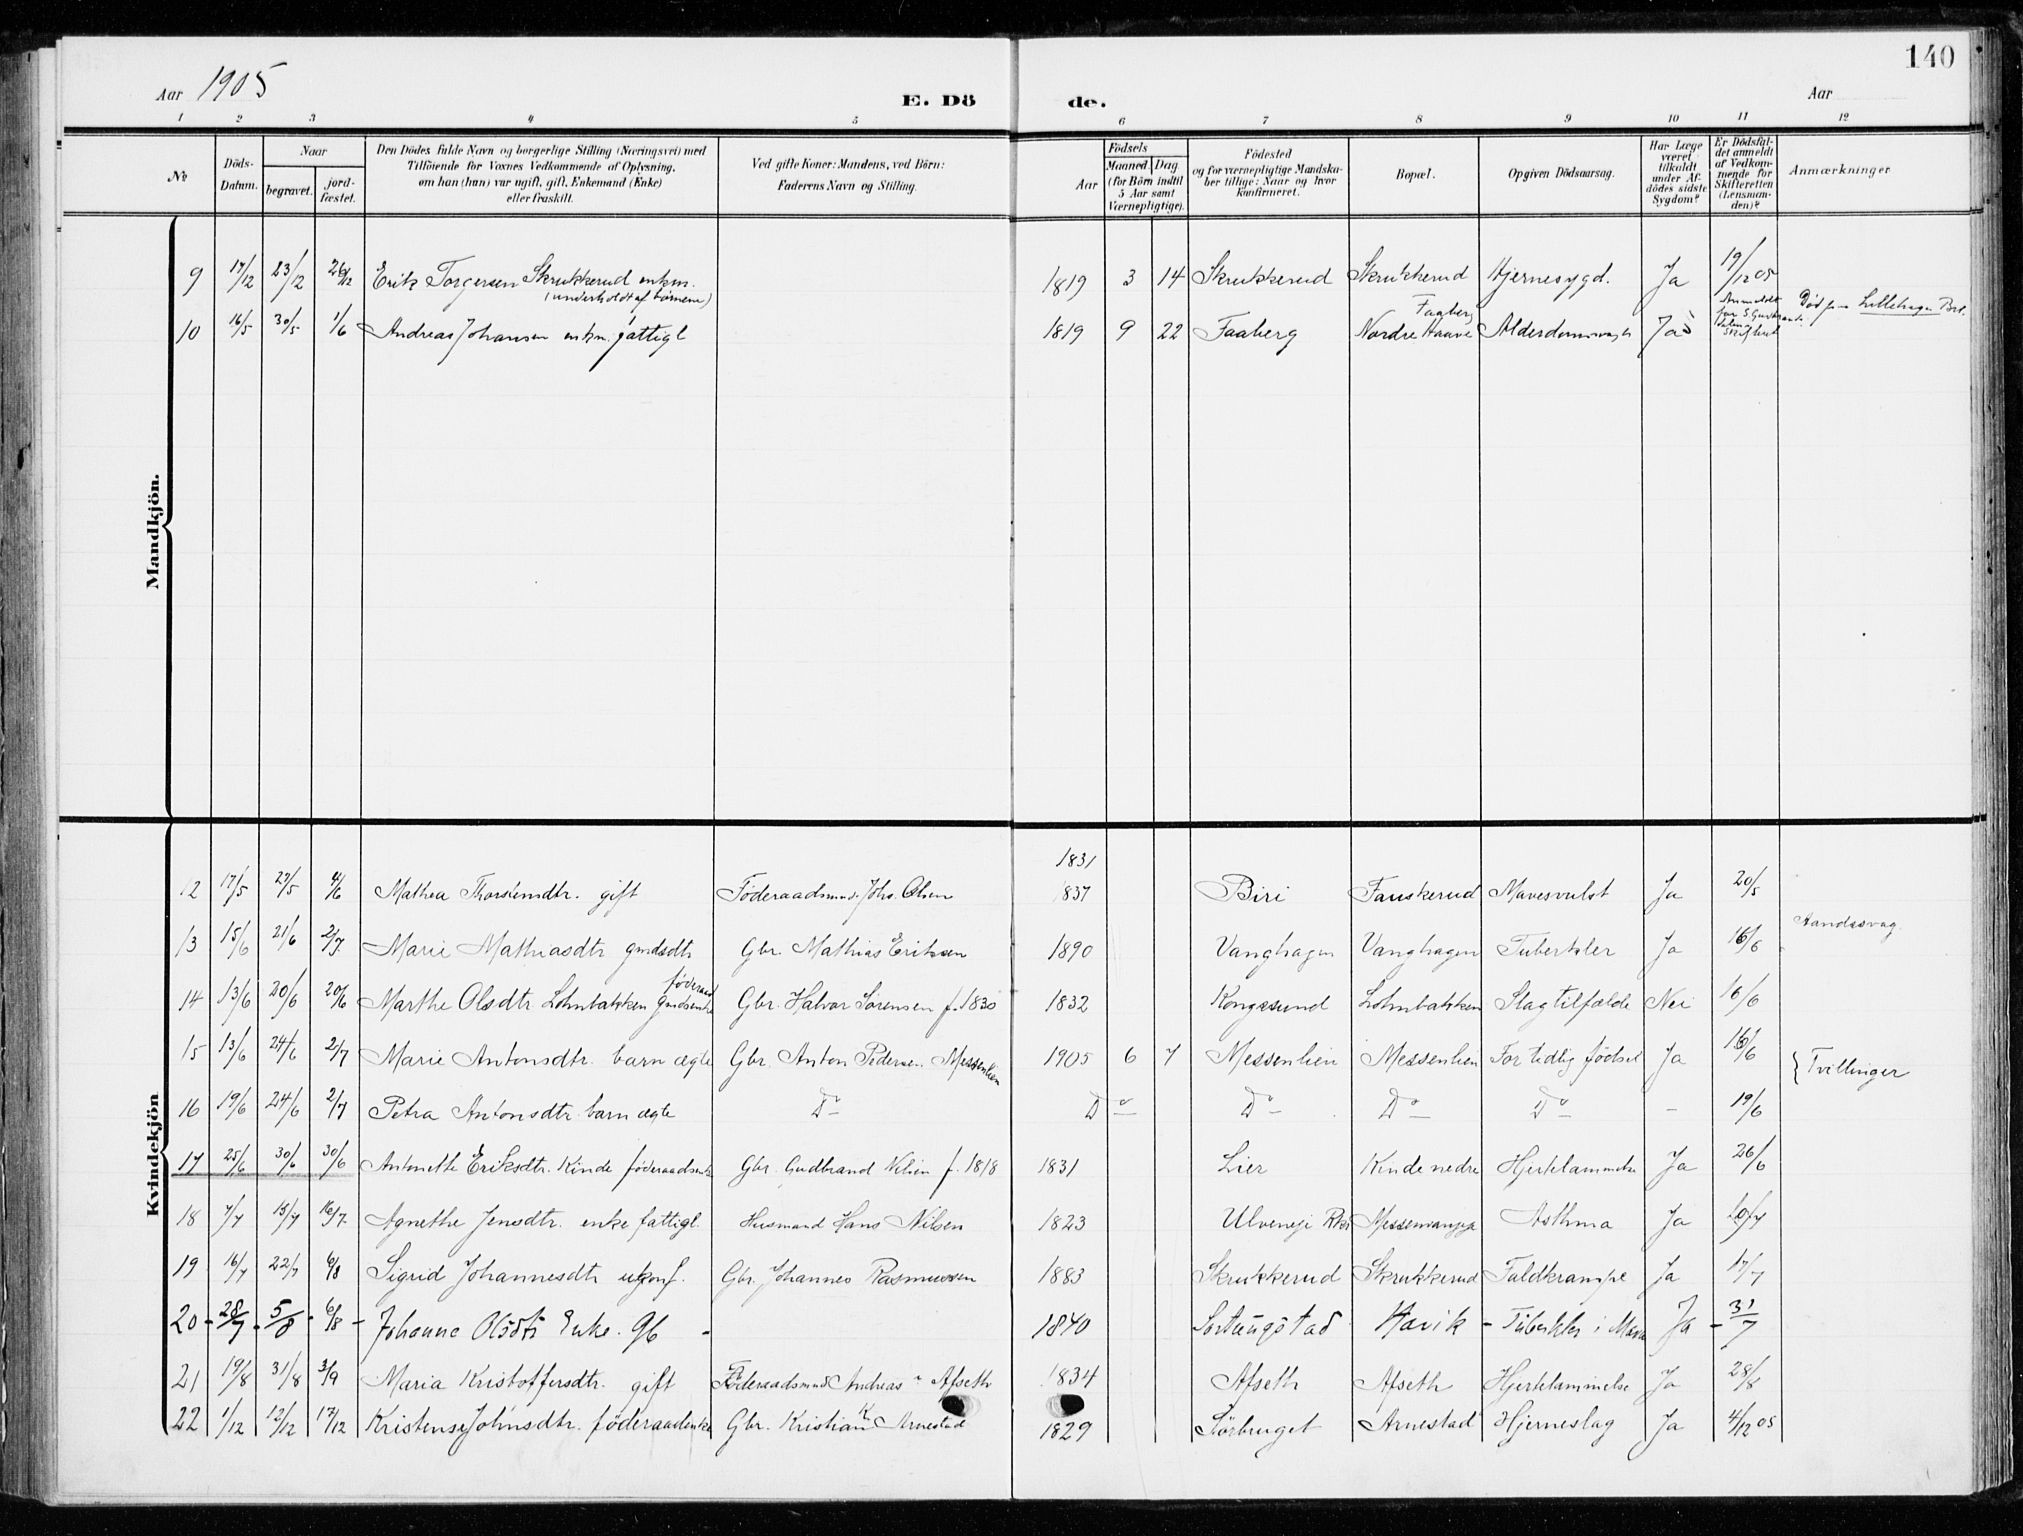 140
Aar 1905
E. Dö de.
Aar
1 2 3 4 5 6 7 8 9 10 11 12
No
Döds-Datum.
Naar
begravet.
jord-fæstet.
Den Dödes fulde Navn og borgerlige Stilling (Næringsvei) med
Tilföiende for Voxnes Vedkommende af Oplysning,
om han (hun) var ugift, gift, Enkemand (Enke)
eller fraskilt.
Ved gifte Koner: Mandens, ved Börn:
Faderens Navn og Stilling.
Aar
Födsels
Maaned Dag
(for Börn indtil
5 Aar samt
Værnepligtige).
Födested
og for værnepligtige Mandska-
ber tillige: Naar og hvor
konfirmeret.
Bopæl.
Opgiven Dödsaarsag.
Har Læge
været
tilkaldt
under Af-
dödes sidste
Sygdom?
Er Dödsfal-
det anmeldt
af Vedkom-
mende for
Skifteretten
(Lensman-
den)?
Anmærkninger
Mandkjön.
9 17/12 23/12 26/12 Erik Torgersen Skrukkerud enkm. 1819 3 14 Skrukkerud Skrukkerud Hjernesygd. Ja 19/12 05
(underholdt af börnene)
10 16/5 30/5 1/6 Andreas Johansen enkm. fattigl 1819 9 22 Faaberg Nordre Haave Faaberg Ja
Kvindekjön
1831
12 17/5 27/5 4/6 Mathea Thorstensdtr. gift Föderaadsmd. Johs. Olsen 1837 Biri Fauskerud Mavesvulst Ja 20/5
13 15/6 21/6 2/7 Marie Mathiasdtr gmdsdtr Gbr. Mathias Eriksen 1890 Vanghagen Vanghagen Tuberkler Ja 16/6 Aandssvag.
14 13/6 20/6 20/6 Marthe Olsdtr Lohnbakken föderaad Gbr. Halvor Sörensen f. 1830 1832 Kongssund Lohnbakken Slagtilfælde Nei 16/6
15 13/6 24/6 2/7 Marie Antonsdtr. barn ægte Gbr. Anton Pedersen Messenlien 1905 6 7 Messenlien Messenlien For tidlig födsel Ja 16/6 { Tvillinger
16 19/6 24/6 2/7 Petra Antonsdtr. barn ægte Do Do Do Do Do - 19/6
17 25/6 30/6 30/6 Antonette Eriksdtr. Kinde föderaadsenke Gbr. Gudbrand Nilsen f. 1818 1831 Lier Kinde nedre Hjertelammelse Ja 26/6
18 7/7 15/7 16/7 Agnethe Jensdtr. enke fattigl. Husmand Hans Nilsen 1823 Asthma Ja 10/7
19 16/7 22/7 6/8 Sigrid Johannesdtr Gbr. Johannes Rasmussen 1883 Skrukkerud Skrukkerud Faldkrampe Ja 17/7
20 - 28/7 - 5/8 - 6/8 - Johanne Olsdtr Enke. Gb - 1840 Havik - Tuberkler i Mave Ja - 31/7
21 19/8 31/8 3/9 Maria Kristoffersdtr. gift Föderaadsmd Andreas Afseth 1834 Afseth Afseth Hjertelammelse Ja 28/8
22 1/12 12/12 17/12 Kristense Johnsdtr. föderaadenke Gbr. Kristian K. Arnestad 1829 Sörbruget Arnestad Hjerneslag Ja 4/12 05